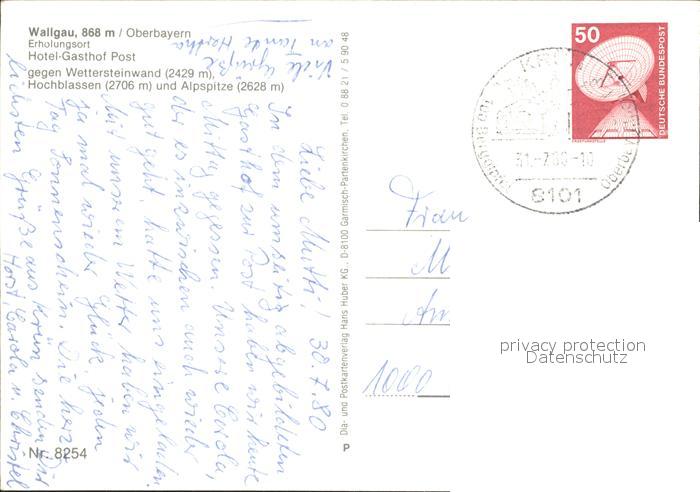 Wallgau, 868 m / Oberbayern
Erholungsort
Hotel-Gasthof Post
gegen Wettersteinwand (2429 m),
Hochblassen (2706 m) und Alpspitze (2628 m)
Liebe Mutti! 30.7.80
In dem umseitig abgebildeten
Gasthof zur Post haben wir heute
Mittag gegessen. Unsere Carola,
der es inzwischen auch wieder
gut geht, hatte uns eingeladen.
Mit unserem Wetter haben wir
ja mal wieder Glück, jeden
Tag Sonnenschein. Die herz-
lichsten Grüße aus Krün senden Dir
Horst, Carola u. Christel
Viele Grüße
an Tante Hertha
Nr. 8254
Dia- und Postkartenverlag Hans Huber KG., D-8100 Garmisch-Partenkirchen, Tel. 0 88 21 / 5 90 48
P
50
DEUTSCHE BUNDESPOST
31.-7.80-10
8101
Frau
M
An
1000
privacy protection
Datenschutz